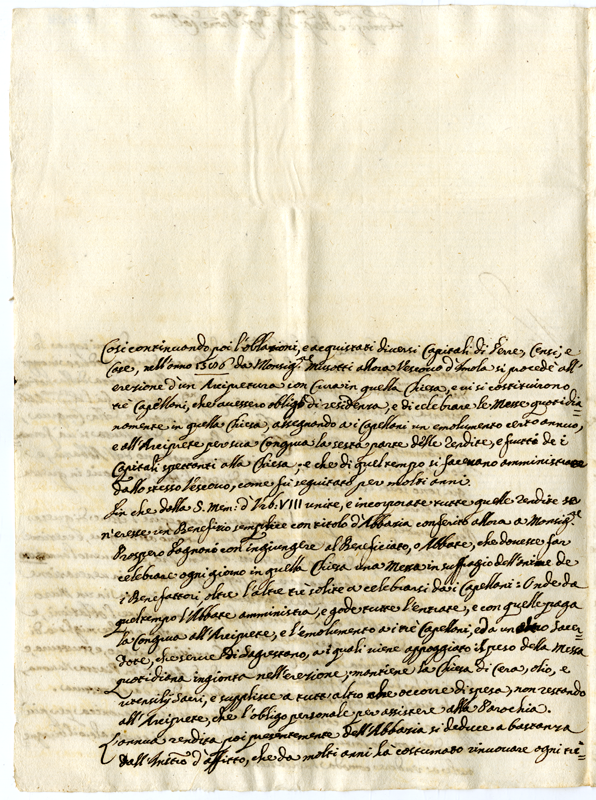 Così continuando poi l'oblazioni, e acquistati diversi Capitali di Terre, Censi, e
Case, nell'anno 1506 da Monsig.re Musotti allora Vescovo d'Imola si procedè all'
erezione d'un Arcipretura con Cura in quella Chiesa, e vi si costituirono
trè Capellani, che avessero obligo di residenza, e di celebrare le Messe quotidia=
namente in quella Chiesa, assegnando a i Capellani un emolumento certo annuo,
e all'Arciprete per sua Congrua la sesta parte delle rendite, e frutti de i
Capitali spettanti alla Chiesa, e che di quel tempo si facevano amministrare
dallo stesso Vescovo, come fu seguitato per molti anni.
Fin che dalla S. Mem: d'Urb: VIII unite, e incorporate tutte quelle rendite se
n'eresse un Benefizio semplice con titolo d'Abbazia conferito allora a Monsig.re
Prospero Fagnani con ingiungere al Beneficiato, o Abbate, che dovesse far
celebrare ogni giorno in quella Chiesa una Messa in suffragio dell'anime de
i Benefattori oltre l'altre trè solite a celebrarsi da i Capellani: Onde da
quel tempo l'Abbate amministra, e gode tutte l'entrate, e con quelle paga
la Congrua all'Arciprete, e l'emolumento a i trè Capellani, ed a un altro Sacer=
dote, che serve di Sagrestano, a i quali viene appoggiato il peso della Messa
quotidiana ingionta nell'erezione; mantiene la Chiesa di Cera, olio, e
Utensily Sacri, e supplisce a tutt'altro che occorre di spesa, non restando
all'Arciprete, che l'obligo personale per assistere alla Parochia.
L'annua rendita poi presentemente dell'Abbazia si deduce a bastanza
dall' d'affitto, che da molti anni hà costumato rinuovare ogni trè=